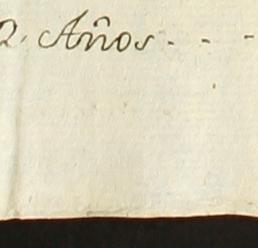 2. Años - - -